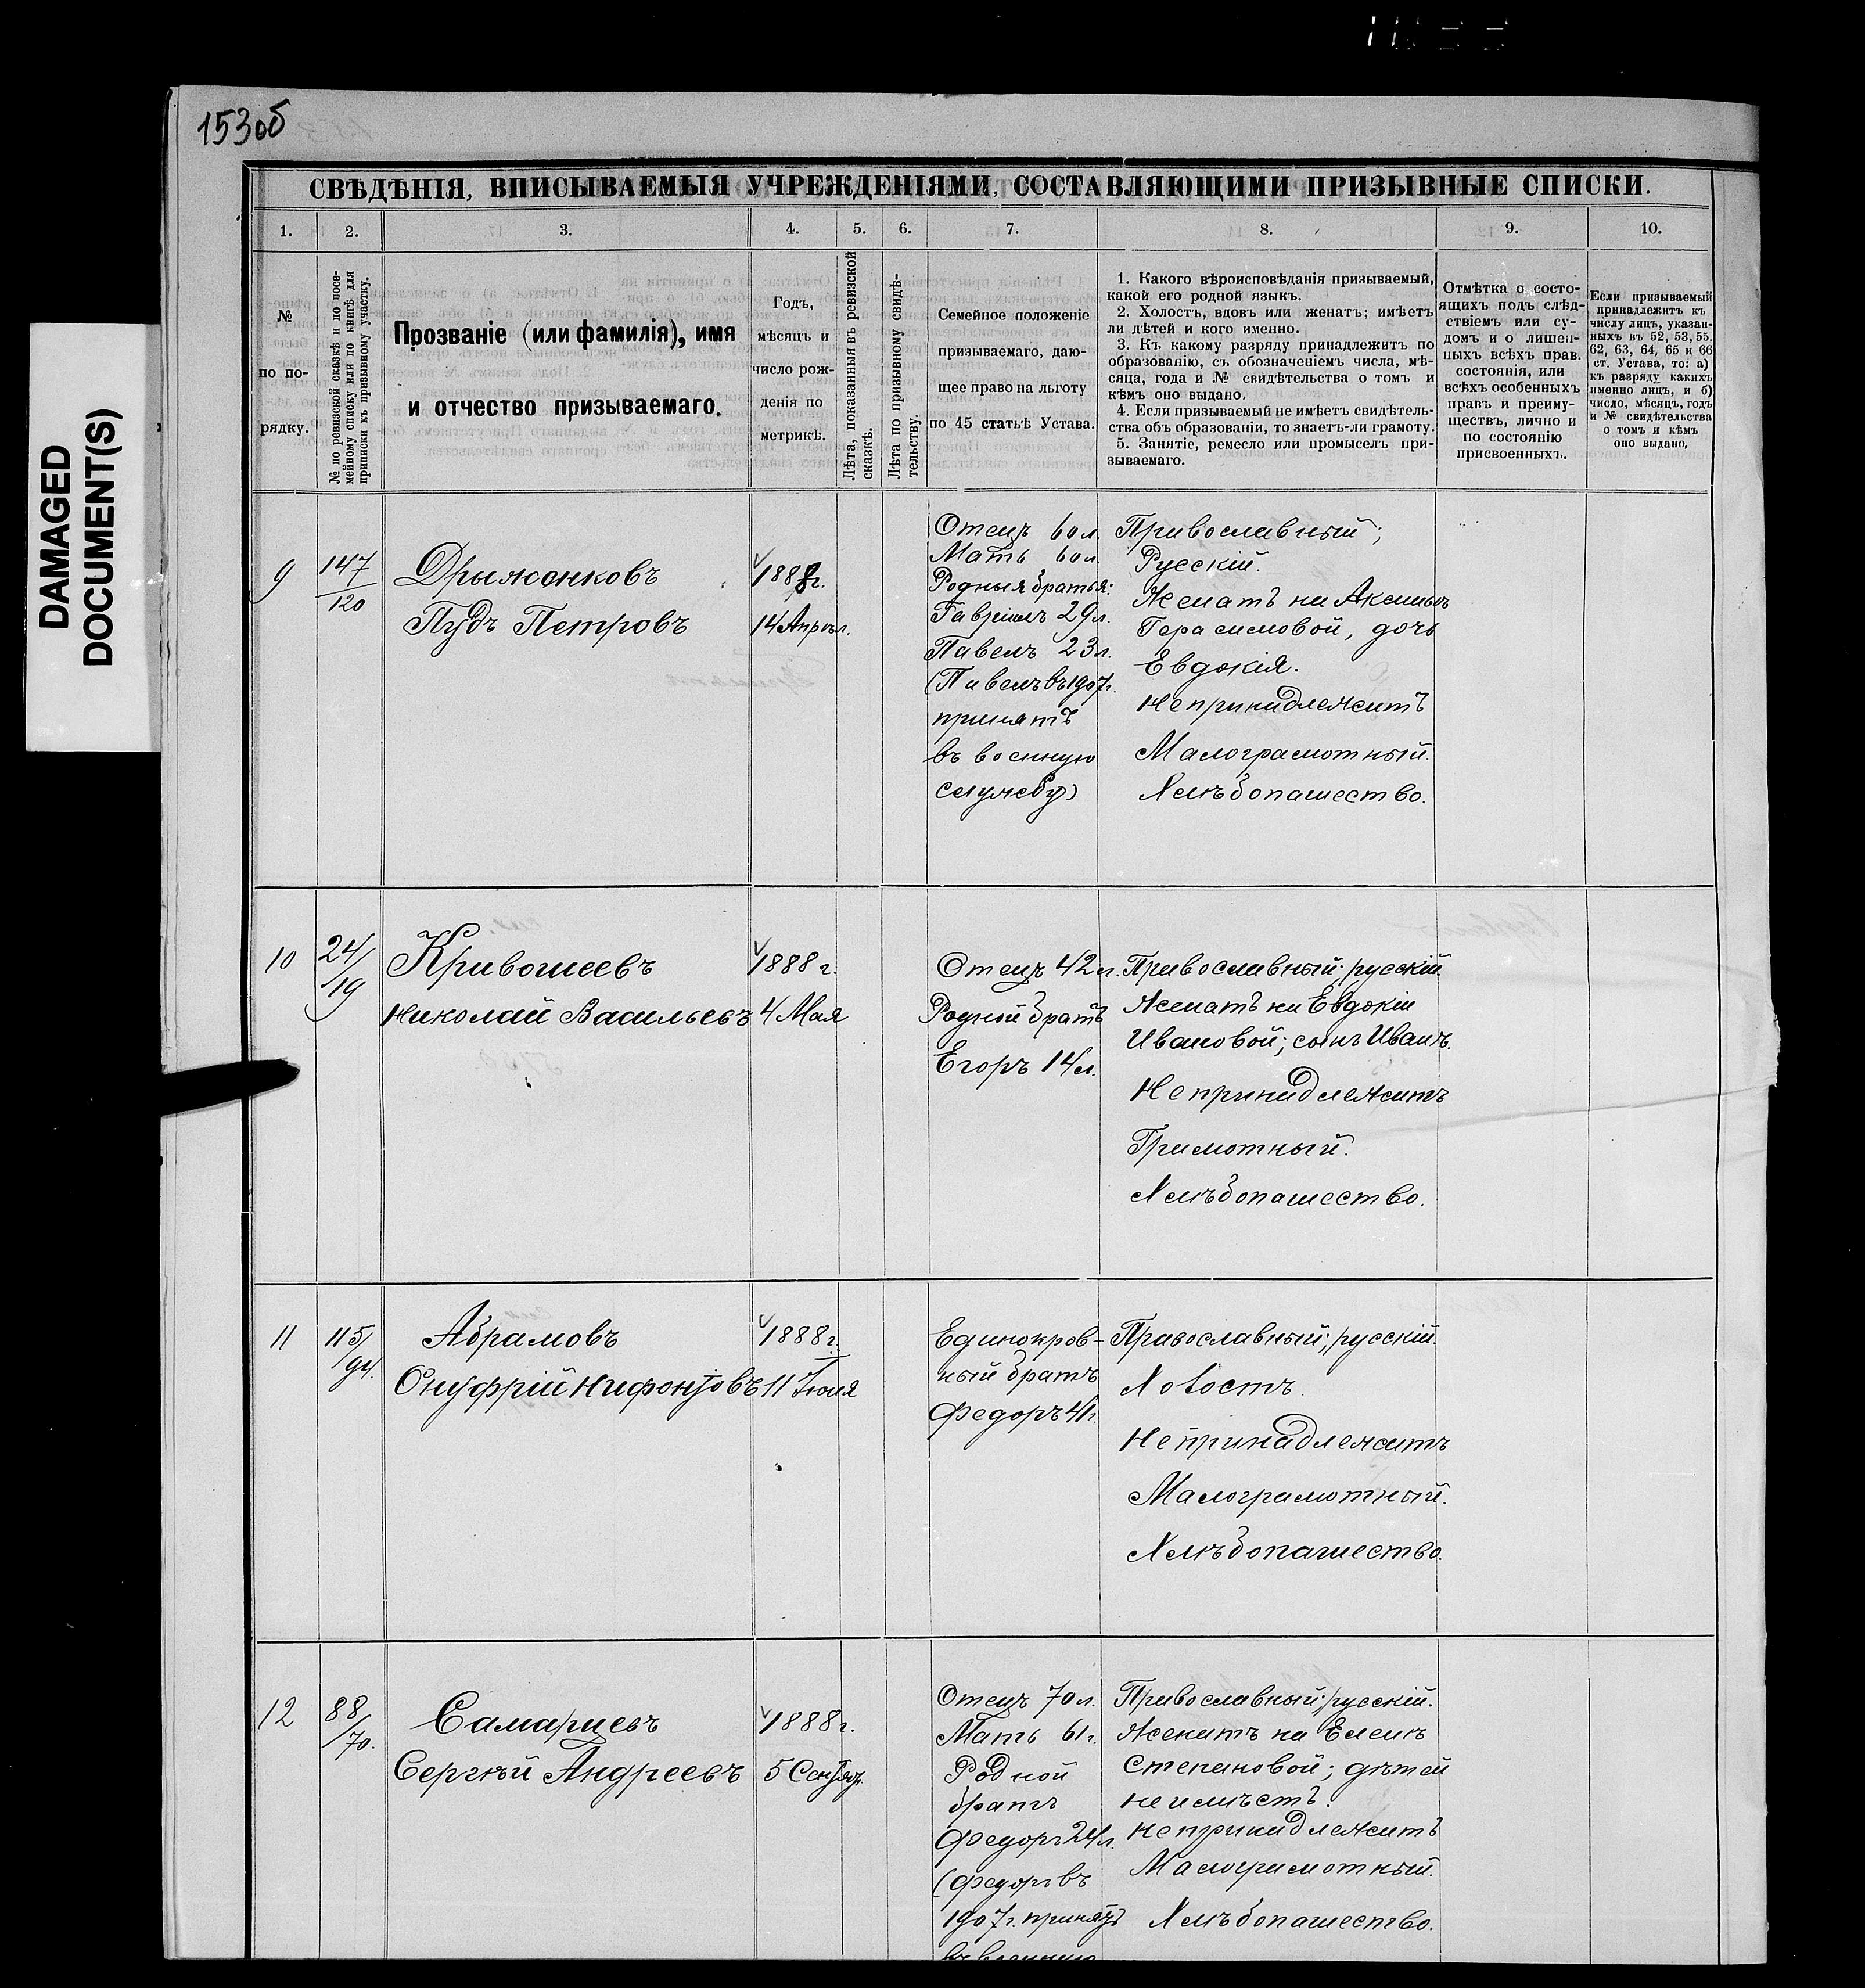 153об
DAMAGED
DOCUMENT(S)
СВѢДѢНІЯ, ВПИСЫВАЕМЫЯ УЧРЕЖДЕНІЯМИ, СОСТАВЛЯЮЩИМИ ПРИЗЫВНЫЕ СПИСКИ.
1. 2. 3. 4. 5. 6. 7. 8. 9. 10.
№
по по-
рядку.
№ по ревизской сказкѣ и по посе-
мейному списку или по книгѣ для
приписки къ призывному участку.
Прозваніе (или фамилія), имя
и отчество призываемаго.
Годъ,
мѣсяцъ и
число рож-
денія по
метрикѣ.
Лѣта, показанныя въ ревизской
сказкѣ.
Лѣта по призывному свидѣ-
тельству.
Семейное положеніе
призываемаго, даю-
щее право на льготу
по 45 статьѣ Устава.
1. Какого вѣроисповѣданія призываемый,
какой его родной языкъ.
2. Холостъ, вдовъ или женатъ; имѣетъ
ли дѣтей и кого именно.
3. Къ какому разряду принадлежитъ по
образованію, съ обозначеніемъ числа, мѣ-
сяца, года и № свидѣтельства о томъ и
кѣмъ оно выдано.
4. Если призываемый не имѣетъ свидѣтель-
ства объ образованіи, то знаетъ-ли грамоту.
5. Занятіе, ремесло или промыселъ при-
зываемаго.
Отмѣтка о состо-
ящихъ подъ слѣд-
ствіемъ или су-
домъ и о лишен-
ныхъ всѣхъ прав.
состоянія, или
всѣхъ особенныхъ
правъ и преиму-
ществъ, лично и
по состоянію
присвоенныхъ.
Если призываемый
принадлежитъ къ
числу лицъ, указан-
ныхъ въ 52, 53, 55.
62, 63, 64, 65 и 66
ст. Устава, то: а)
къ разряду какихъ
именно лицъ, и б)
число, мѣсяцъ, годъ
и № свидѣтельства
о томъ и кѣмъ
оно выдано.
9
147
120
Дрыженковъ
Пудъ Петровъ
1888г.
14 Апрѣл.
Отецъ 60 л.
Мать 60 л
Родныя братья:
Гавріилъ 29 л.
Павелъ 23 л.
(Павелъ въ 1907 г.
принятъ
въ военную
службу)
Православный;
Русскій.
Женатъ на Аксиньѣ
Герасимовой, дочь
Евдокія.
Не принадлежитъ
Малограмотный.
Хлѣбопашество.
10
24/19
Кривошеевъ
Николай Васильевъ
1888 г.
4 Мая
Отецъ 42 л.
Родной братъ
Егоръ 14 л.
Православный; русскій.
Женатъ на Евдокіи
Ивановой; сынъ Иванъ.
Не принадлежитъ
Грамотный.
Хлѣбопашество.
11
115/94.
Абрамовъ
Онуфрій Нифонтовъ
1888 г.
11 Іюня
Единокров-
ный братъ
Федоръ 41 г.
Православный; русскій.
Холостъ.
Не принадлежитъ
Малограмотный.
Хлѣбопашество.
12
88/70.
Самарцевъ
Сергѣй Андреевъ
1888 г.
5 Сентяр.
Отецъ 70 л.
Мать 61 г.
Родной
братъ
Федоръ 24 л.
(Федоръ въ
1907 г. принятъ
въ военную
Православный; русскій.
Женатъ на Еленѣ
Степановой; дѣтей
не имѣетъ.
Не принадлежитъ
Малограмотный.
Хлѣбопашество.